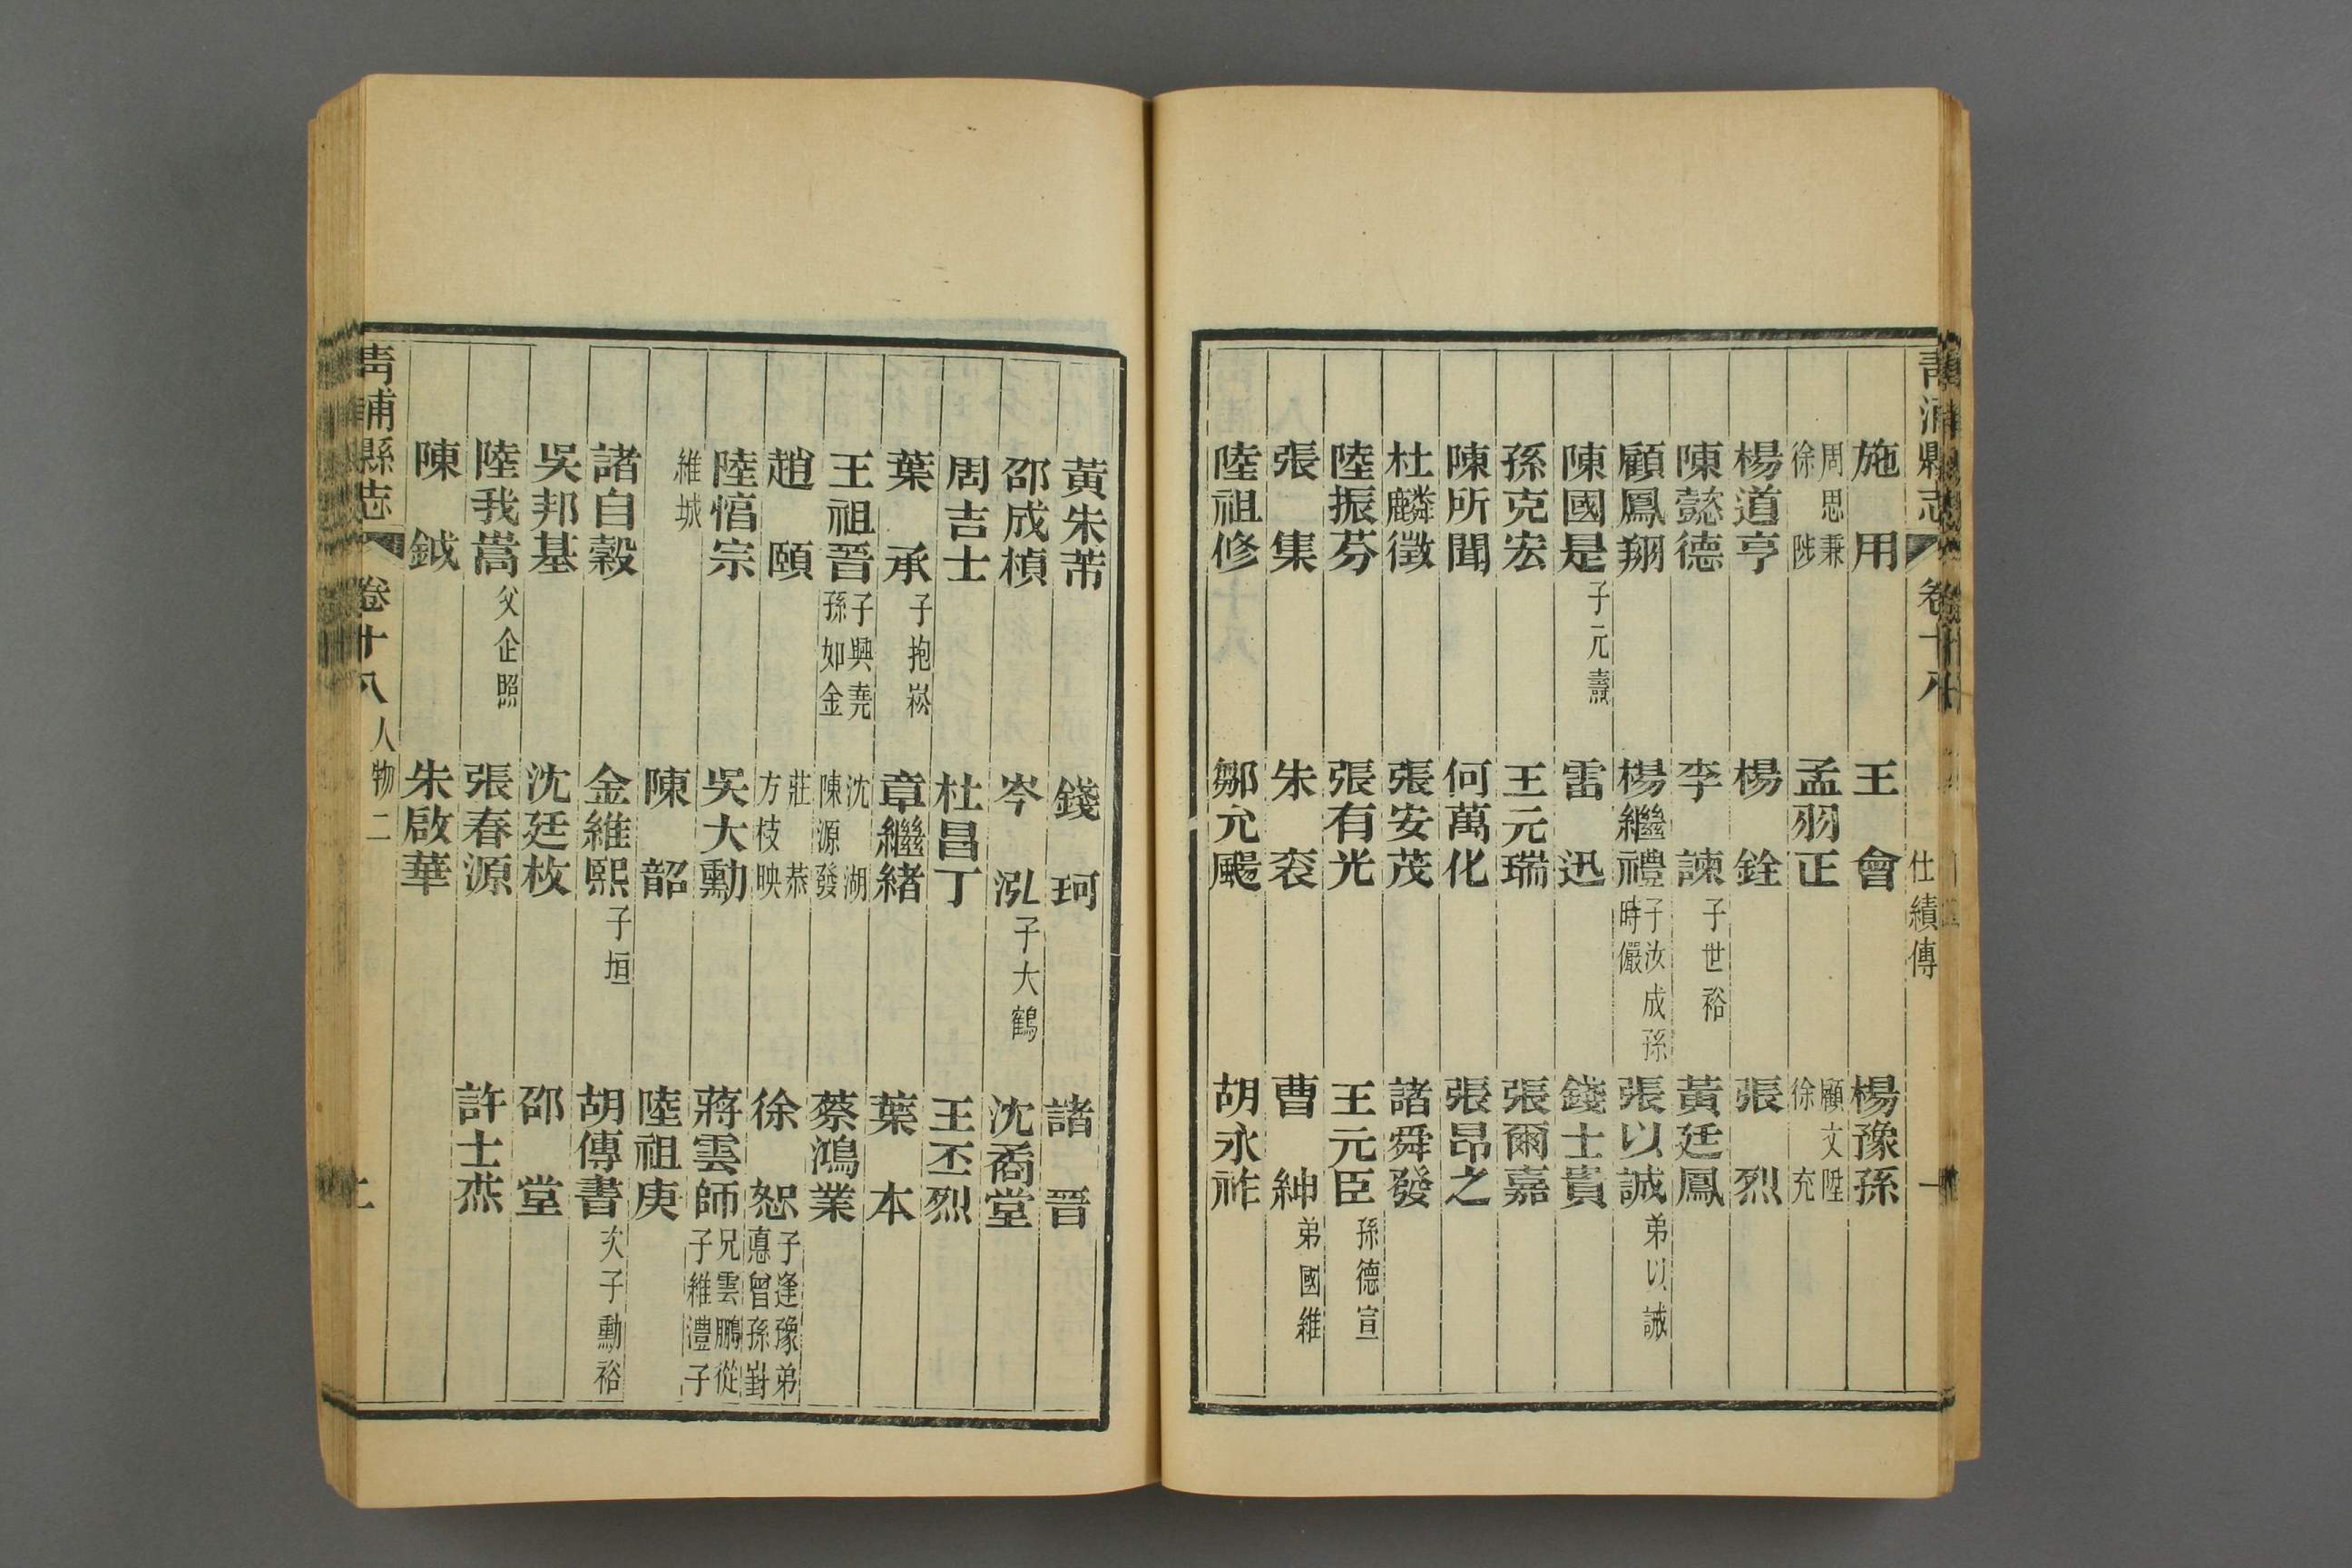 青浦縣志 卷十八 仕績傳 一
施用 王會 楊豫孫
周思兼 徐陟 孟羽正 顧文陞 徐充
楊道亨 楊銓 張烈
陳懿德 李諫 子世裕 黃廷鳳
顧鳳翔 楊繼禮 子汝成孫時儼 張以誠 弟以誠
陳國是 子元壽 雷迅 錢士貴
孫克宏 王元瑞 張爾嘉
陳所聞 何萬化 張昂之
杜麟徵 張安茂 諸舜發
陸振芬 張有光 王元臣 孫德宣
張集 朱袞 曹紳 弟國維
陸祖修 鄒允颺 胡永祚
黃朱芾 錢珂 諸晉
邵成楨 岑泓 子大鶴 沈喬堂
周吉士 杜昌丁 王丕烈
葉承 子抱崧 章繼緒 葉本
王祖晉 子興堯孫如金 沈湖 陳源發 蔡鴻業
趙頤 莊恭 方枝映 徐恕 子逢豫弟憙曾孫對
陸惇宗 吳大勳 蔣雲師 兄雲鵬從子維澧子
維城 陳韶 陸祖庚
諸自穀 金維熙 子垣 胡傳書 次子勳裕
吳邦基 沈廷枚 邵堂
陸我嵩 父企照 張春源 許士杰
陳鉞 朱啟華
青浦縣志 卷十八 人物二